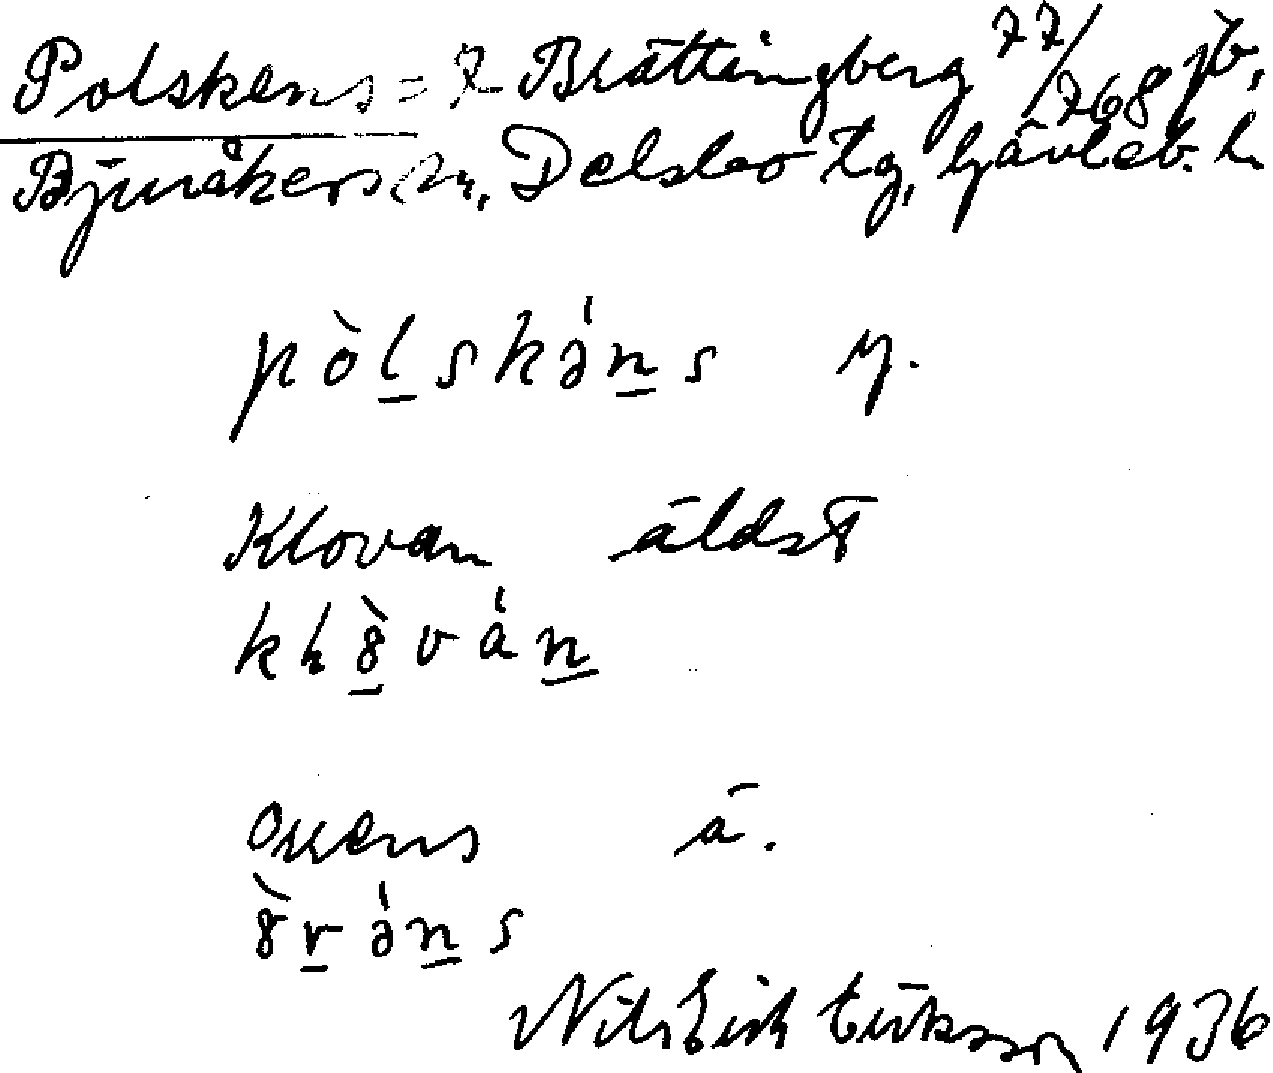 Polskens = i Brättingberg 77/768 jb,
Bjuråkers sn, Delsbo tg, Gävleb. l.
pòlskəns y.
Klovan äldst
kḷòván
Orrens ä.
òrəns
Nils Erik Eriksson 1936